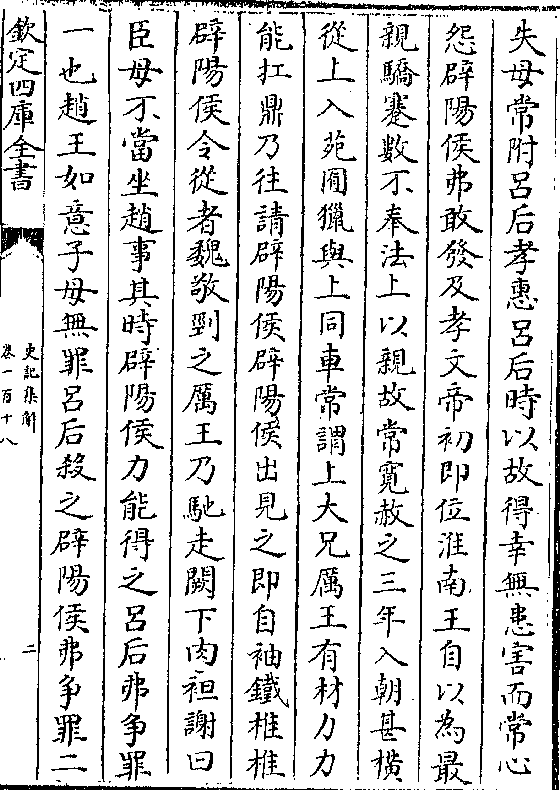 失母常附呂后孝惠呂后時以故得幸無患害而常心
怨辟陽侯弗敢發及孝文帝初即位淮南王自以為最
親驕蹇數不奉法上以親故常寛赦之三年入朝甚橫
從上入苑囿獵與上同車常謂上大兄厲王有材力力
能扛鼎乃往請辟陽侯辟陽侯出見之即自袖鐵椎椎
辟陽侯令從者魏敬剄之厲王乃馳走闕下肉袒謝曰
臣母不當坐趙事其時辟陽侯力能得之呂后弗争罪
一也趙王如意子母無罪呂后殺之辟陽侯弗争罪二
欽定四庫全書
史記集解
卷一百十八
二